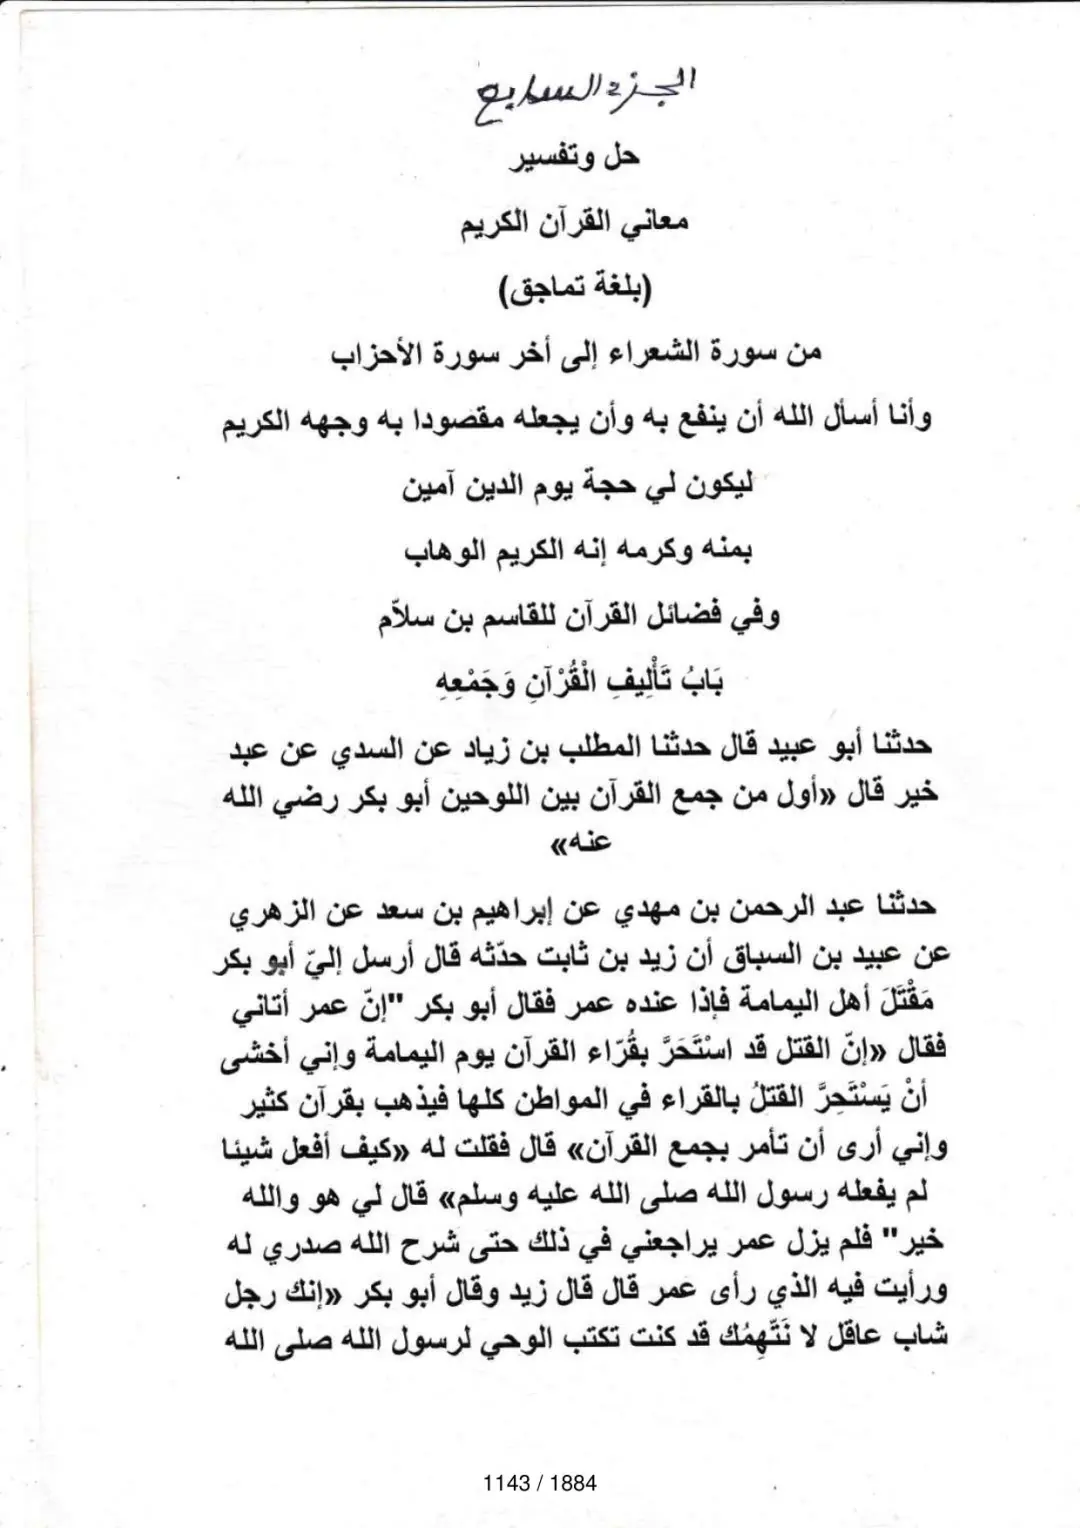 الجزء السابع
حل وتفسير
معاني القرآن الكريم
(بلغة تماجق)
من سورة الشعراء إلى أخر سورة الأحزاب
وأنا أسأل الله أن ينفع به وأن يجعله مقصودا به وجهه الكريم
ليكون لي حجة يوم الدين آمين
بمنه وكرمه إنه الكريم الوهاب
وفي فضائل القرآن للقاسم بن سلاّم
بَابُ تَأْلِيفِ الْقُرْآنِ وَجَمْعِهِ
حدثنا أبو عبيد قال حدثنا المطلب بن زياد عن السدي عن عبد
خير قال «أول من جمع القرآن بين اللوحين أبو بكر رضي الله
عنه»
حدثنا عبد الرحمن بن مهدي عن إبراهيم بن سعد عن الزهري
عن عبيد بن السباق أن زيد بن ثابت حدّثه قال أرسل إليّ أبو بكر
مَقْتَلَ أهل اليمامة فإذا عنده عمر فقال أبو بكر "إنّ عمر أتاني
فقال «إنّ القتل قد اسْتَحَرَّ بقُرّاء القرآن يوم اليمامة وإني أخشى
أنْ يَسْتَحِرَّ القتلُ بالقراء في المواطن كلها فيذهب بقرآن كثير
وإني أرى أن تأمر بجمع القرآن» قال فقلت له «كيف أفعل شيئا
لم يفعله رسول الله صلى الله عليه وسلم» قال لي هو والله
خير" فلم يزل عمر يراجعني في ذلك حتى شرح الله صدري له
ورأيت فيه الذي رأى عمر قال قال زيد وقال أبو بكر «إنك رجل
شاب عاقل لا نَتّهِمُك قد كنت تكتب الوحي لرسول الله صلى الله
1143 / 1884